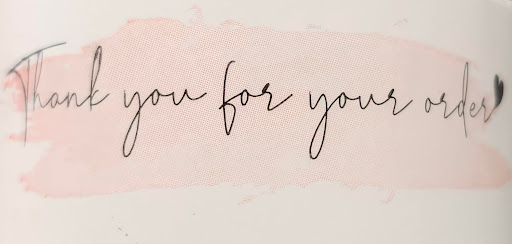 Thank you for your order♥